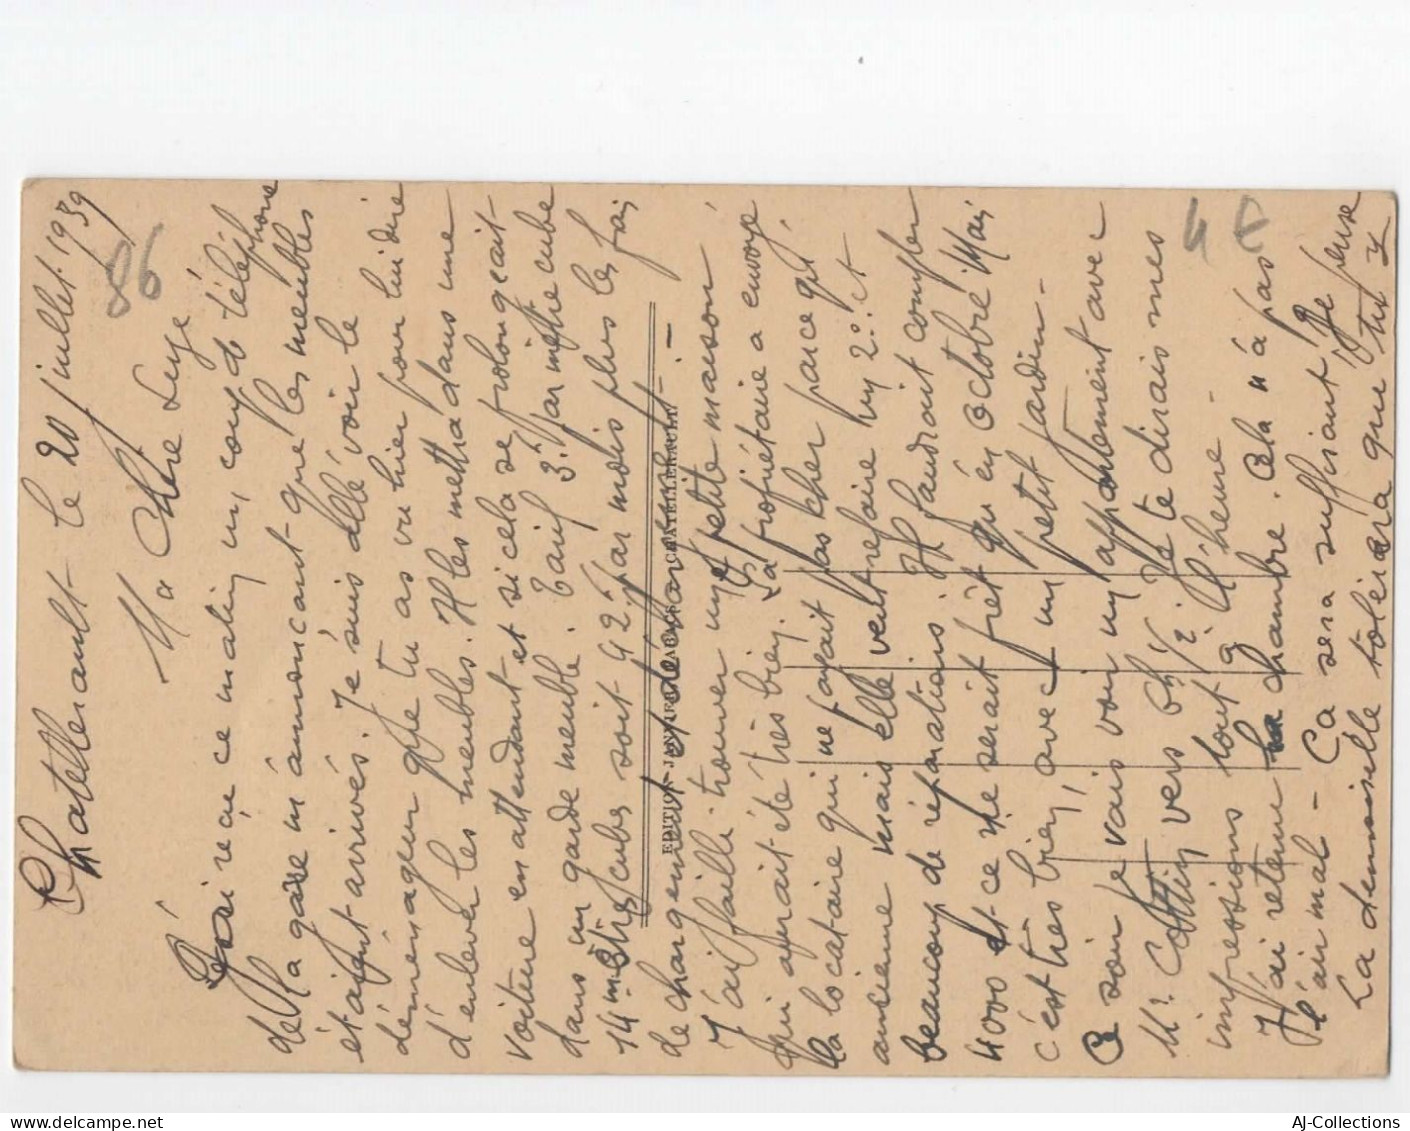 Chatellerault le 20 juillet 1939
86
Ma chère Luge
J'ai reçu ce matin un coup de téléphone
de la gare m'annoncant que les meubles
étaient arrivés. Je suis allé voir le
déménageur que tu as vu hier pour lui dire
d'enlever les meubles. Il les mettra dans une
voiture en attendant et si cela se prolongeait
dans un garde meuble. Tarif 3F par mètre cube
14 mètres cubes soit 42F par mois plus les frais
de chargement et de
J'ai failli trouver une petite maison
qui aurait été très bien. La propriétaire a envoyé
la locataire qui ne payait pas cher parce qu'
ancienne mais elle veut refaire un 2e et
beaucoup de réparations. Il faudrait compter
4000 et ce ne serait prêt qu'en octobre. Mais
c'est très bien, avec un petit jardin -
Ce soir je vais voir un appartement avec
Mr Cottin vers 6h 1/2. Je te dirais mes
impressions tout à l'heure -
J'ai retenu la chambre. Cela n'a pas
l'air mal - Ca sera suffisant je pense
La demoiselle tolèrera que tu y
EDITION J. CHATELLERAULT
4 E
AJ-Collections